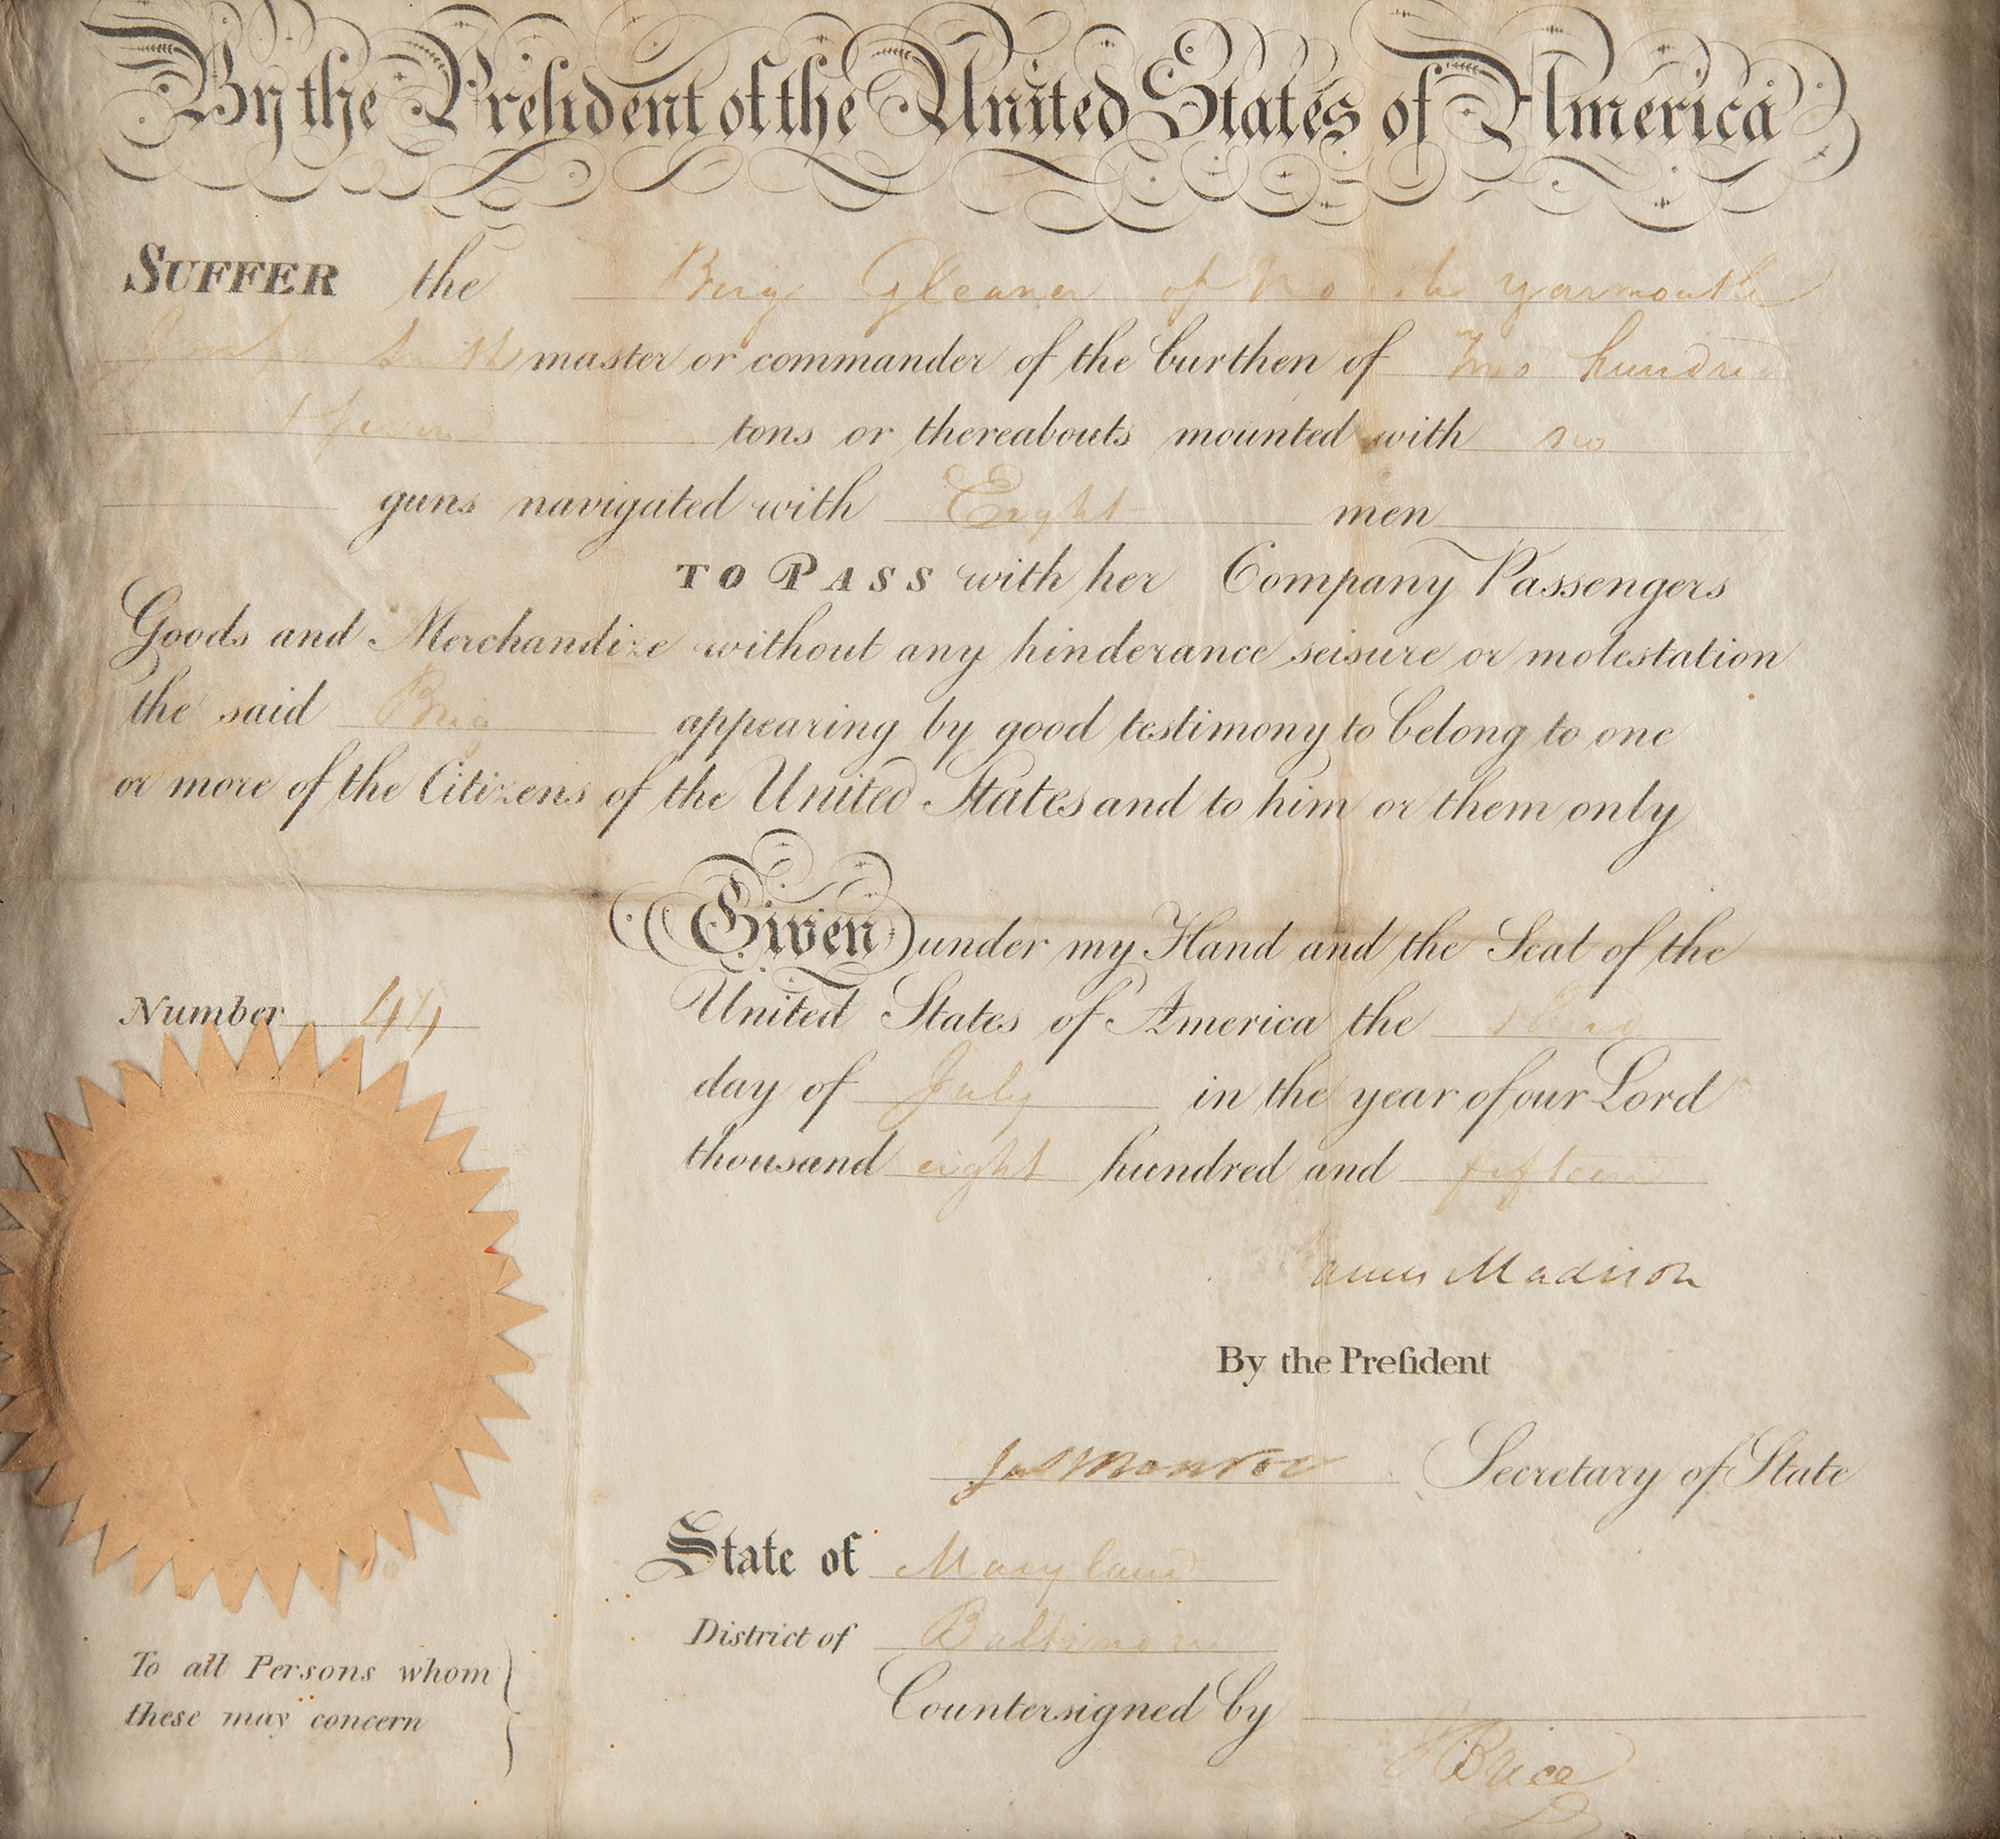 By the Preſident of the United States of America
SUFFER the Brig Gleaner of North Yarmouth
Smith master or commander of the burthen of Two hundred
tons or thereabouts mounted with no
guns navigated with Eight men
TO PASS with her Company Passengers
Goods and Merchandize without any hinderance seisure or molestation
the said Brig appearing by good testimony to belong to one
or more of the Citizens of the United States and to him or them only
Given under my Hand and the Seal of the
Number 44
United States of America the
day of July in the year of our Lord
thousand eight hundred and fifteen
James Madison
By the Preſident
Jas Monroe Secretary of State
State of Maryland
District of Baltimore
To all Persons whom
these may concern
Countersigned by
Brice